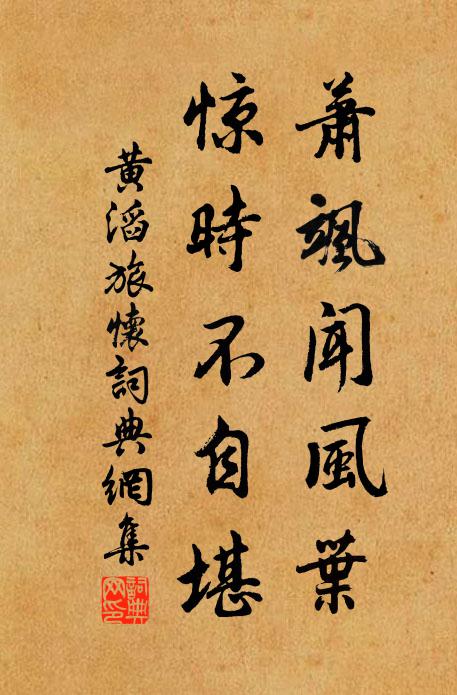 蕭颯聞風葉
惊時不自堪
黃滔旅懷詞典網集
詞典
网印